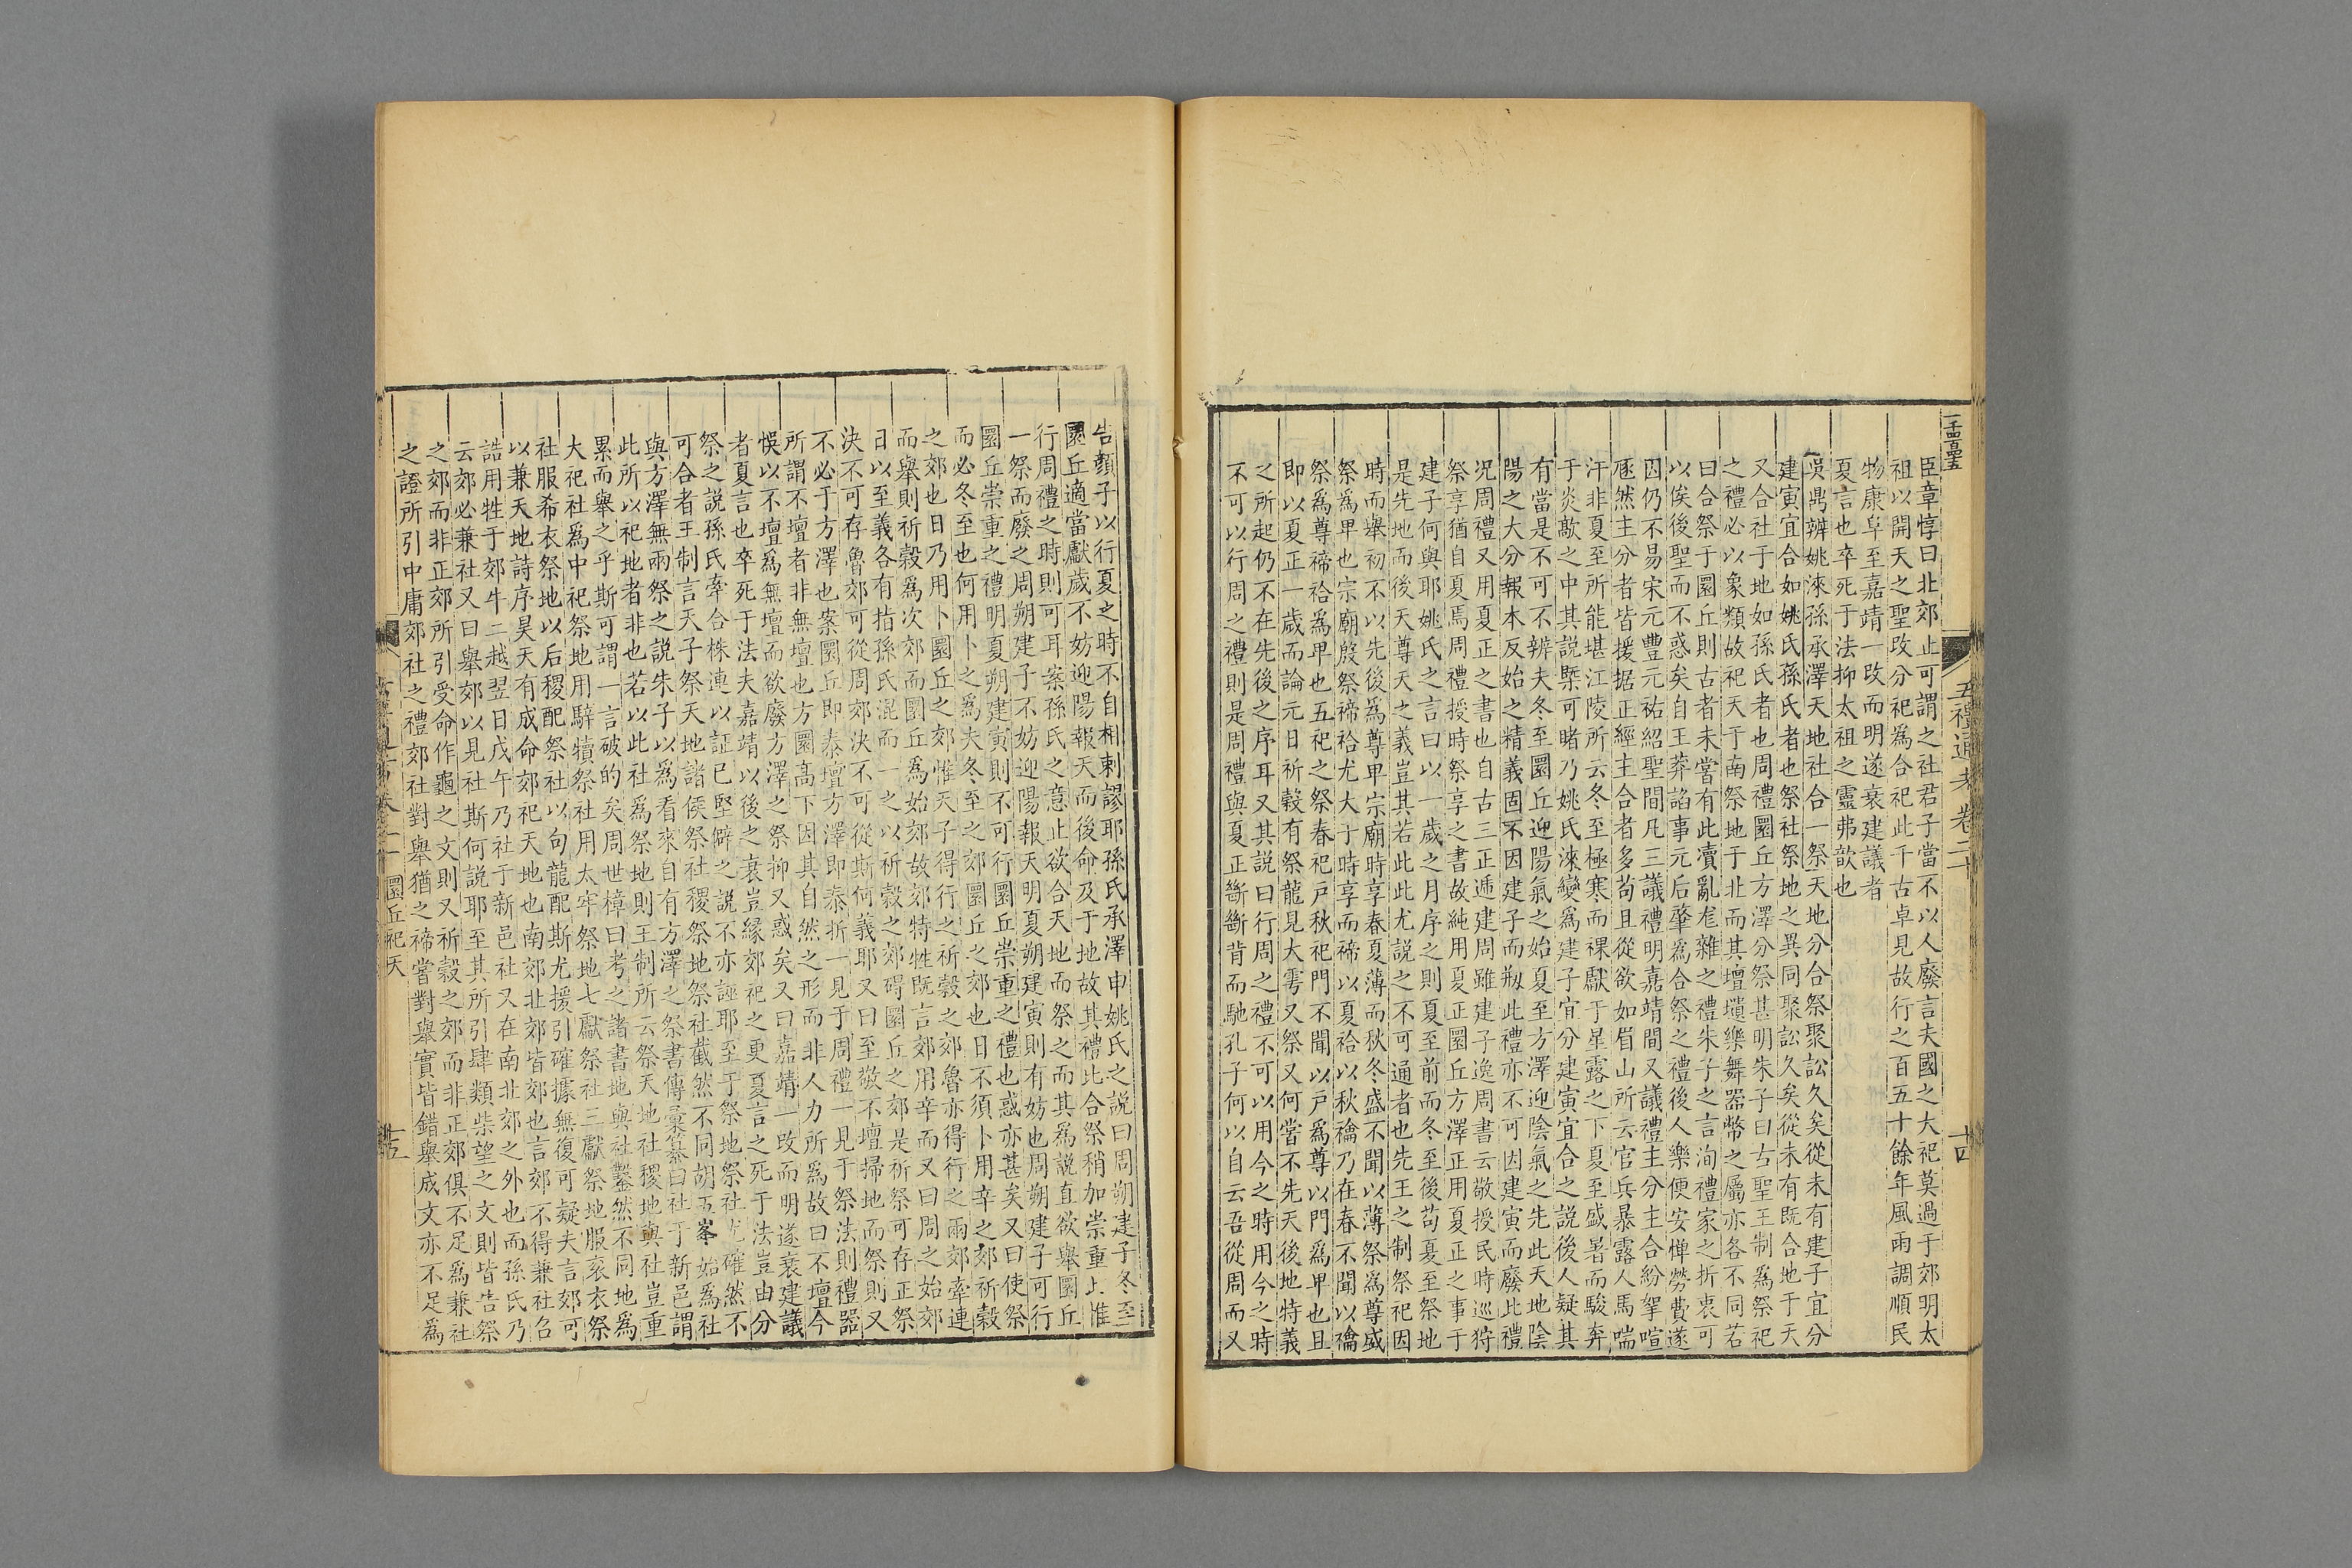 臣章惇曰北郊止可謂之社君子當不以人廢言夫國之大祀莫過于郊明太
祖以開天之聖改分祀爲合祀此千古卓見故行之百五十餘年風雨調順民
物康阜至嘉靖一改而明遂衰建議者
夏言也卒死于法抑太祖之靈弗歆也
吳鼎辨姚淶孫承澤天地社合一祭天地分合祭聚訟久矣從未有建子宜分
建寅宜合如姚氏孫氏者也祭社祭地之異同聚訟久矣從未有既合地于天
又合社于地如孫氏者也周禮圜丘方澤分祭甚明朱子曰古聖王制爲祭祀
之禮必以象類故祀天于南祭地于北而其壇壝樂舞器幣之屬亦各不同若
曰合祭于圜丘則古者未嘗有此瀆亂厖雜之禮朱子之言洵禮家之折衷可
以俟後聖而不惑矣自王莽諂事元后肇爲合祭之禮後人樂便安憚勞費遂
因仍不易宋元豐元祐紹聖間凡三議禮明嘉靖間又議禮主分主合紛挐喧
豗然主分者皆援据正經主合者多苟且從欲如眉山所云官兵暴露人馬喘
汗非夏至所能堪江陵所云冬至極寒而祼獻于星露之下夏至盛暑而駿奔
于炎歊之中其說槩可睹乃姚氏淶變爲建子宜分建寅宜合之說後人疑其
有當是不可不辨夫冬至圜丘迎陽氣之始夏至方澤迎陰氣之先此天地陰
陽之大分報本反始之精義固不因建子而刱此禮亦不可因建寅而廢此禮
况周禮又用夏正之書也自古三正遞建周雖建子逸周書云敬授民時巡狩
祭享猶自夏焉周禮授時祭享之書故純用夏正圜丘方澤正用夏正之事于
建子何與耶姚氏之言曰以一歲之月序之則夏至前而冬至後苟夏至祭地
是先地而後天尊天之義豈其若此此尤說之不可通者也先王之制祭祀因
時而舉初不以先後爲尊卑宗廟時享春夏薄而秋冬盛不聞以薄祭爲尊盛
祭爲卑也宗廟殷祭禘祫尤大于時享而禘以夏祫以秋禴乃在春不聞以禴
祭爲尊禘祫爲卑也五祀之祭春祀戶秋祀門不聞以戶爲尊以門爲卑也且
即以夏正一歲而論元日祈穀有祭龍見大雩又祭又何嘗不先天後地特義
之所起仍不在先後之序耳又其說曰行周之禮不可以用今之時用今之時
不可以行周之禮則是周禮與夏正斷斷背而馳孔子何以自云吾從周而又
告顏子以行夏之時不自相剌謬耶孫氏承澤申姚氏之說曰周朔建子冬至
圜丘適當獻歲不妨迎陽報天而後命及于地故其禮比合祭稍加崇重上惟
行周禮之時則可耳案孫氏之意止欲合天地而祭之而其爲說直欲舉圜丘
一祭而廢之周朔建子不妨迎陽報天明夏朔建寅則有妨也周朔建子可行
圜丘崇重之禮明夏朔建寅則不可行圜丘崇重之禮也惑亦甚矣又曰使祭
而必冬至也何用卜之爲夫冬至之郊圜丘之郊也日不須卜用辛之郊祈穀
之郊也日乃用卜圜丘之郊惟天子得行之祈穀之郊魯亦得行之兩郊牽連
而舉則祈穀爲次郊而圜丘爲始郊故郊特牲既言郊用辛而又曰周之始郊
日以至義各有指孫氏混而一之以祈穀之郊碍圜丘之郊是祈祭可存正祭
決不可存魯郊可從周郊決不可從斯何義耶又曰至敬不壇掃地而祭則又
不必于方澤也案圜丘即泰壇方澤即泰折一見于周禮一見于祭法則禮器
所謂不壇者非無壇也方圜高下因其自然之形而非人力所爲故曰不壇今
悞以不壇爲無壇而欲廢方澤之祭抑又惑矣又曰嘉靖一改而明遂衰建議
者夏言也卒死于法夫嘉靖以後之衰豈緣郊祀之更夏言之死于法豈由分
祭之說孫氏牽合株連以証已堅僻之說不亦誣耶至于祭地祭社尤確然不
可合者王制言天子祭天地諸侯祭社稷祭地祭社截然不同胡五峯始爲社
與方澤無兩祭之說朱子以爲看來自有方澤之祭書傳彙纂曰社于新邑謂
此所以祀地者非也若以此社爲祭地則王制所云祭天地社稷地與社豈重
累而舉之乎斯可謂一言破的矣周世樟曰考之諸書地與社鑿然不同地爲
大祀社爲中祀祭地用騂犢祭社用太牢祭地七獻祭社三獻祭地服衮衣祭
社服希衣祭地以后稷配祭社以句龍配斯尤援引確據無復可疑夫言郊可
以兼天地詩序昊天有成命郊祀天地也南郊北郊皆郊也言郊不得兼社召
誥用牲于郊牛二越翌日戊午乃社于新邑社又在南北郊之外也而孫氏乃
云郊必兼社又曰舉郊以見社斯何說耶至其所引肆類柴望之文則皆告祭
之郊而非正郊所引受命作龜之文則又祈穀之郊而非正郊俱不足爲兼社
之證所引中庸郊社之禮郊社對舉猶之禘嘗對舉實皆錯舉成文亦不足爲
五禮通考卷二十
十四
圜丘祀天